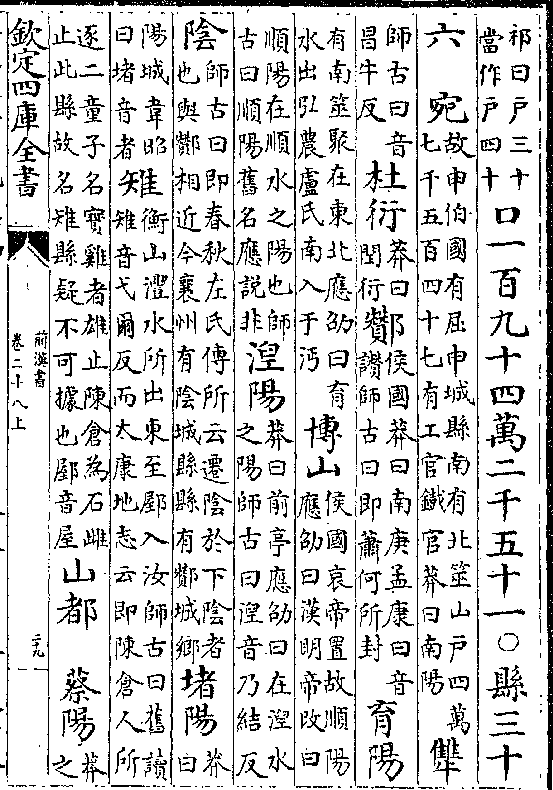 祁曰戸三十當作戸四十口一百九十四萬二千五十一〇縣三十
六　宛故申伯國有屈申城縣南有北筮山戸四萬七千五百四十七有工官鐵官莽曰南陽　犨
師古曰音昌牛反　杜衍莽曰閏衍　酇侯國莽曰南庚孟康曰音讚師古曰即蕭何所封　育陽
有南筮聚在東北應劭曰育水出弘農盧氏南入于沔　博山侯國哀帝置故順陽應劭曰漢明帝改曰
順陽在順水之陽也師古曰順陽舊名應説非　湼陽莽曰前亭應劭曰在湼水之陽師古曰湼音乃結反
陰師古曰即春秋左氏傳所云遷陰於下陰者也與酇相近今襄州有陰城縣縣有酇城鄉　堵陽莽曰
陽城韋昭曰堵音者　雉衡山澧水所出東至郾入汝師古曰舊讀雉音弋爾反而太康地志云即陳倉人所
逐二童子名寳雞者雄止陳倉為石雌止此縣故名雉縣疑不可據也郾音屋　山都　蔡陽莽之
欽定四庫全書
前漢書
卷二十八上
二九